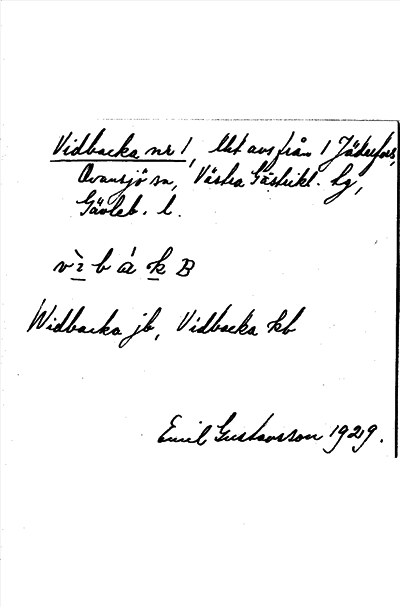 Vidbacka nr 1, lht avs från 1 Jäderfors,
Ovansjö sn, Västra Gästrikl. tg,
Gävleb. l.
v ì b á k B
Widbacka jb, Vidbacka kb
Emil Gustavsson 1929.